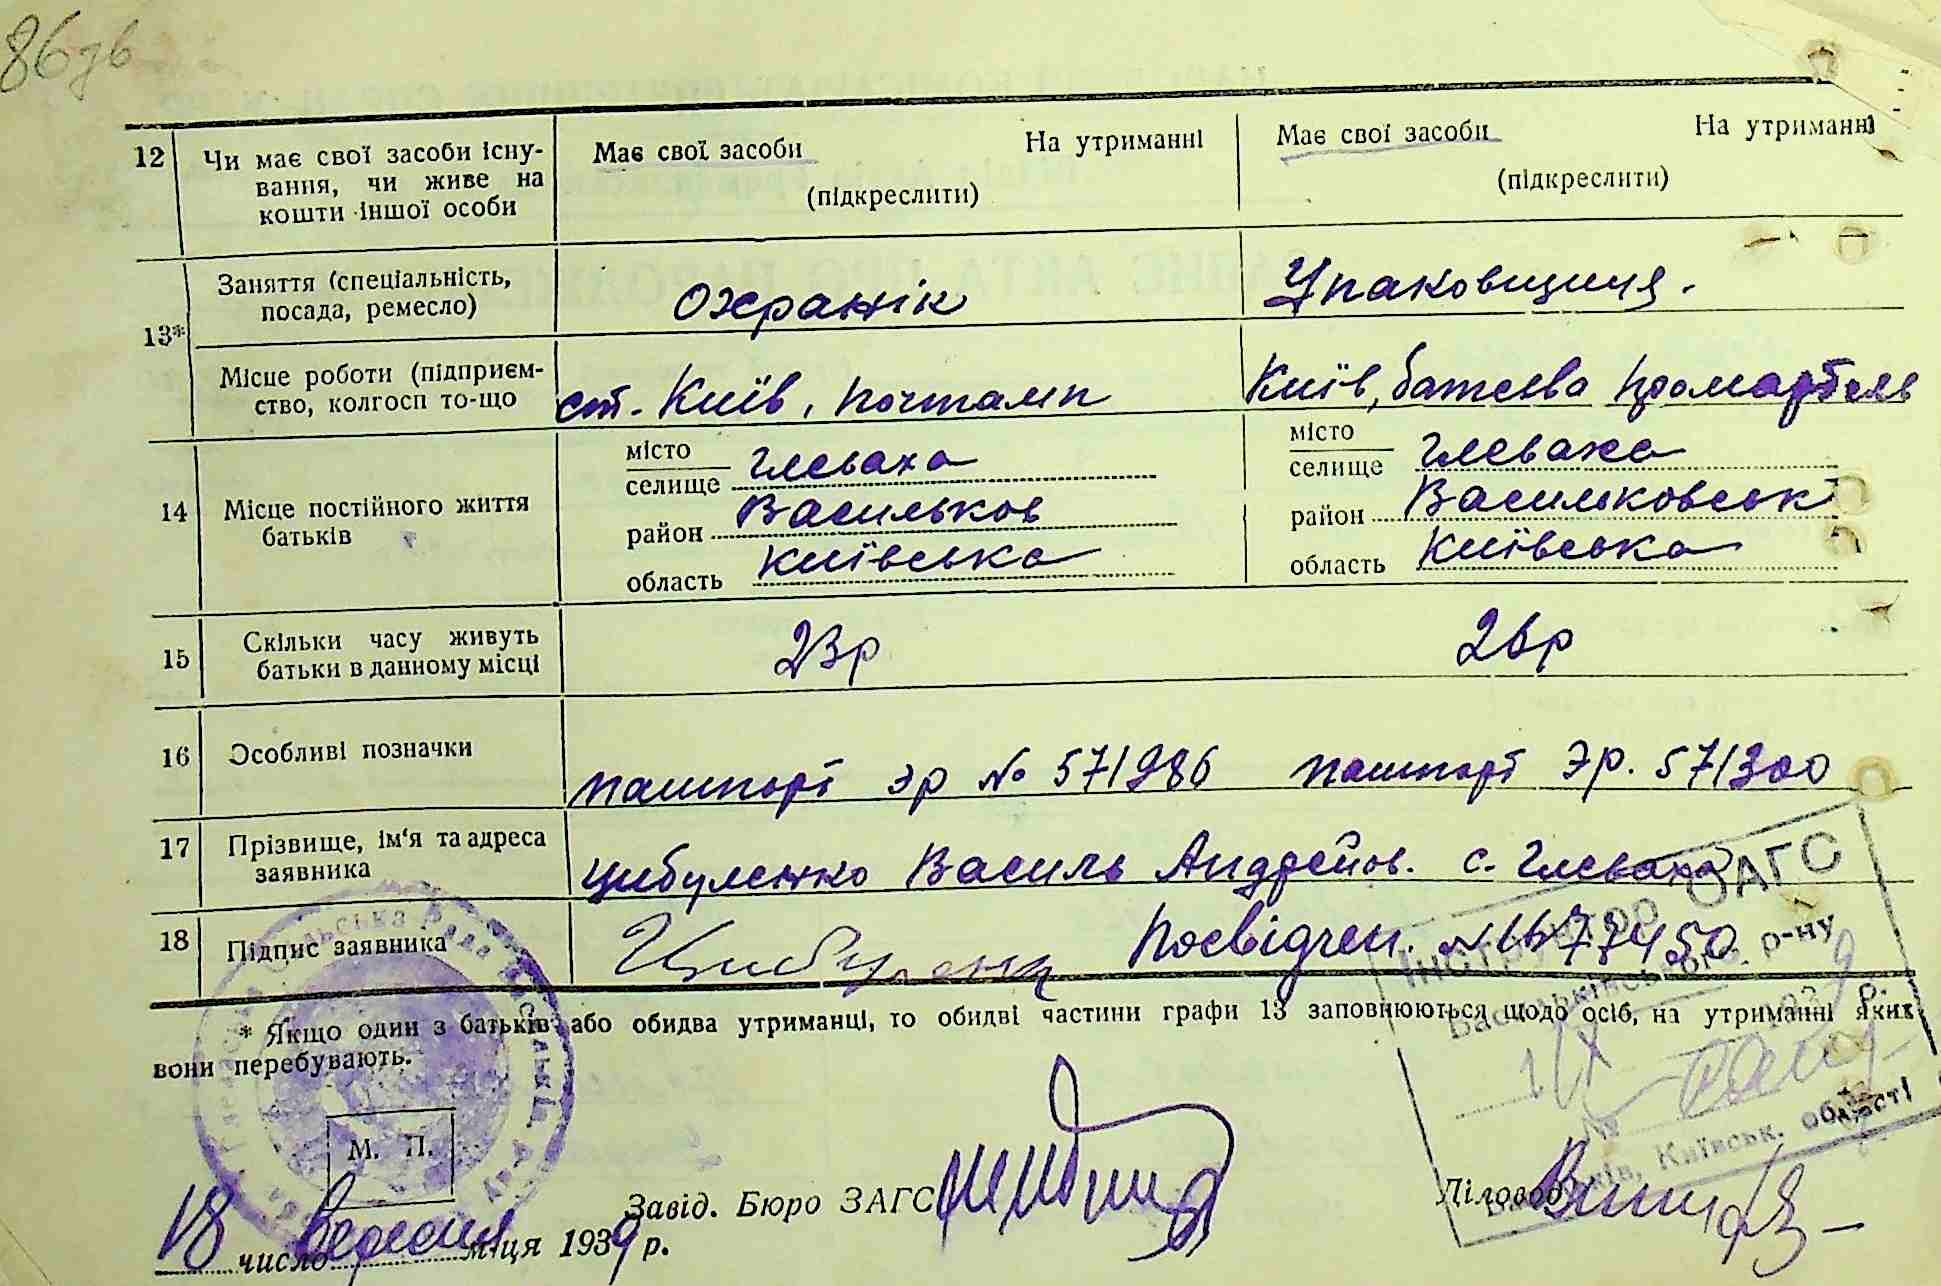 86 зв
12 Чи має свої засоби існу- Має свої засоби На утриманні Має свої засоби На утриманні
вання, чи живе на (підкреслити) (підкреслити)
кошти іншої особи
13* Заняття (спеціальність, Охранік Упаковщиця.
посада, ремесло)
Місце роботи (підприєм- ст. Київ, почтамп Київ, батєєва Промартєль
ство, колгосп то-що
14 Місце постійного життя
батьків
місто
селище Глеваха
район Васильков
область Київська
місто
селище Глеваха
район Васильковськ
область Київська
15 Скільки часу живуть 23р 26р
батьки в данному місці
16 Особливі позначки пашпорт эр № 571986 пашпорт Эр. 571300
17 Прізвище, ім'я та адреса Цибуленко Василь Андрейов. с. Глеваха
заявника
18 Підпис заявника Цибуленк Посвідчен. №
* Якщо один з батьків або обидва утриманці, то обидві частини графи 13 заповнюються щодо осіб, на утриманні яких
вони перебувають.
М. П.
Завід. Бюро ЗАГС Діловод
18 число вересня м-ця 1939 р.
Інструктор ЗАГС
Васильківського р-ну
Київськ. області